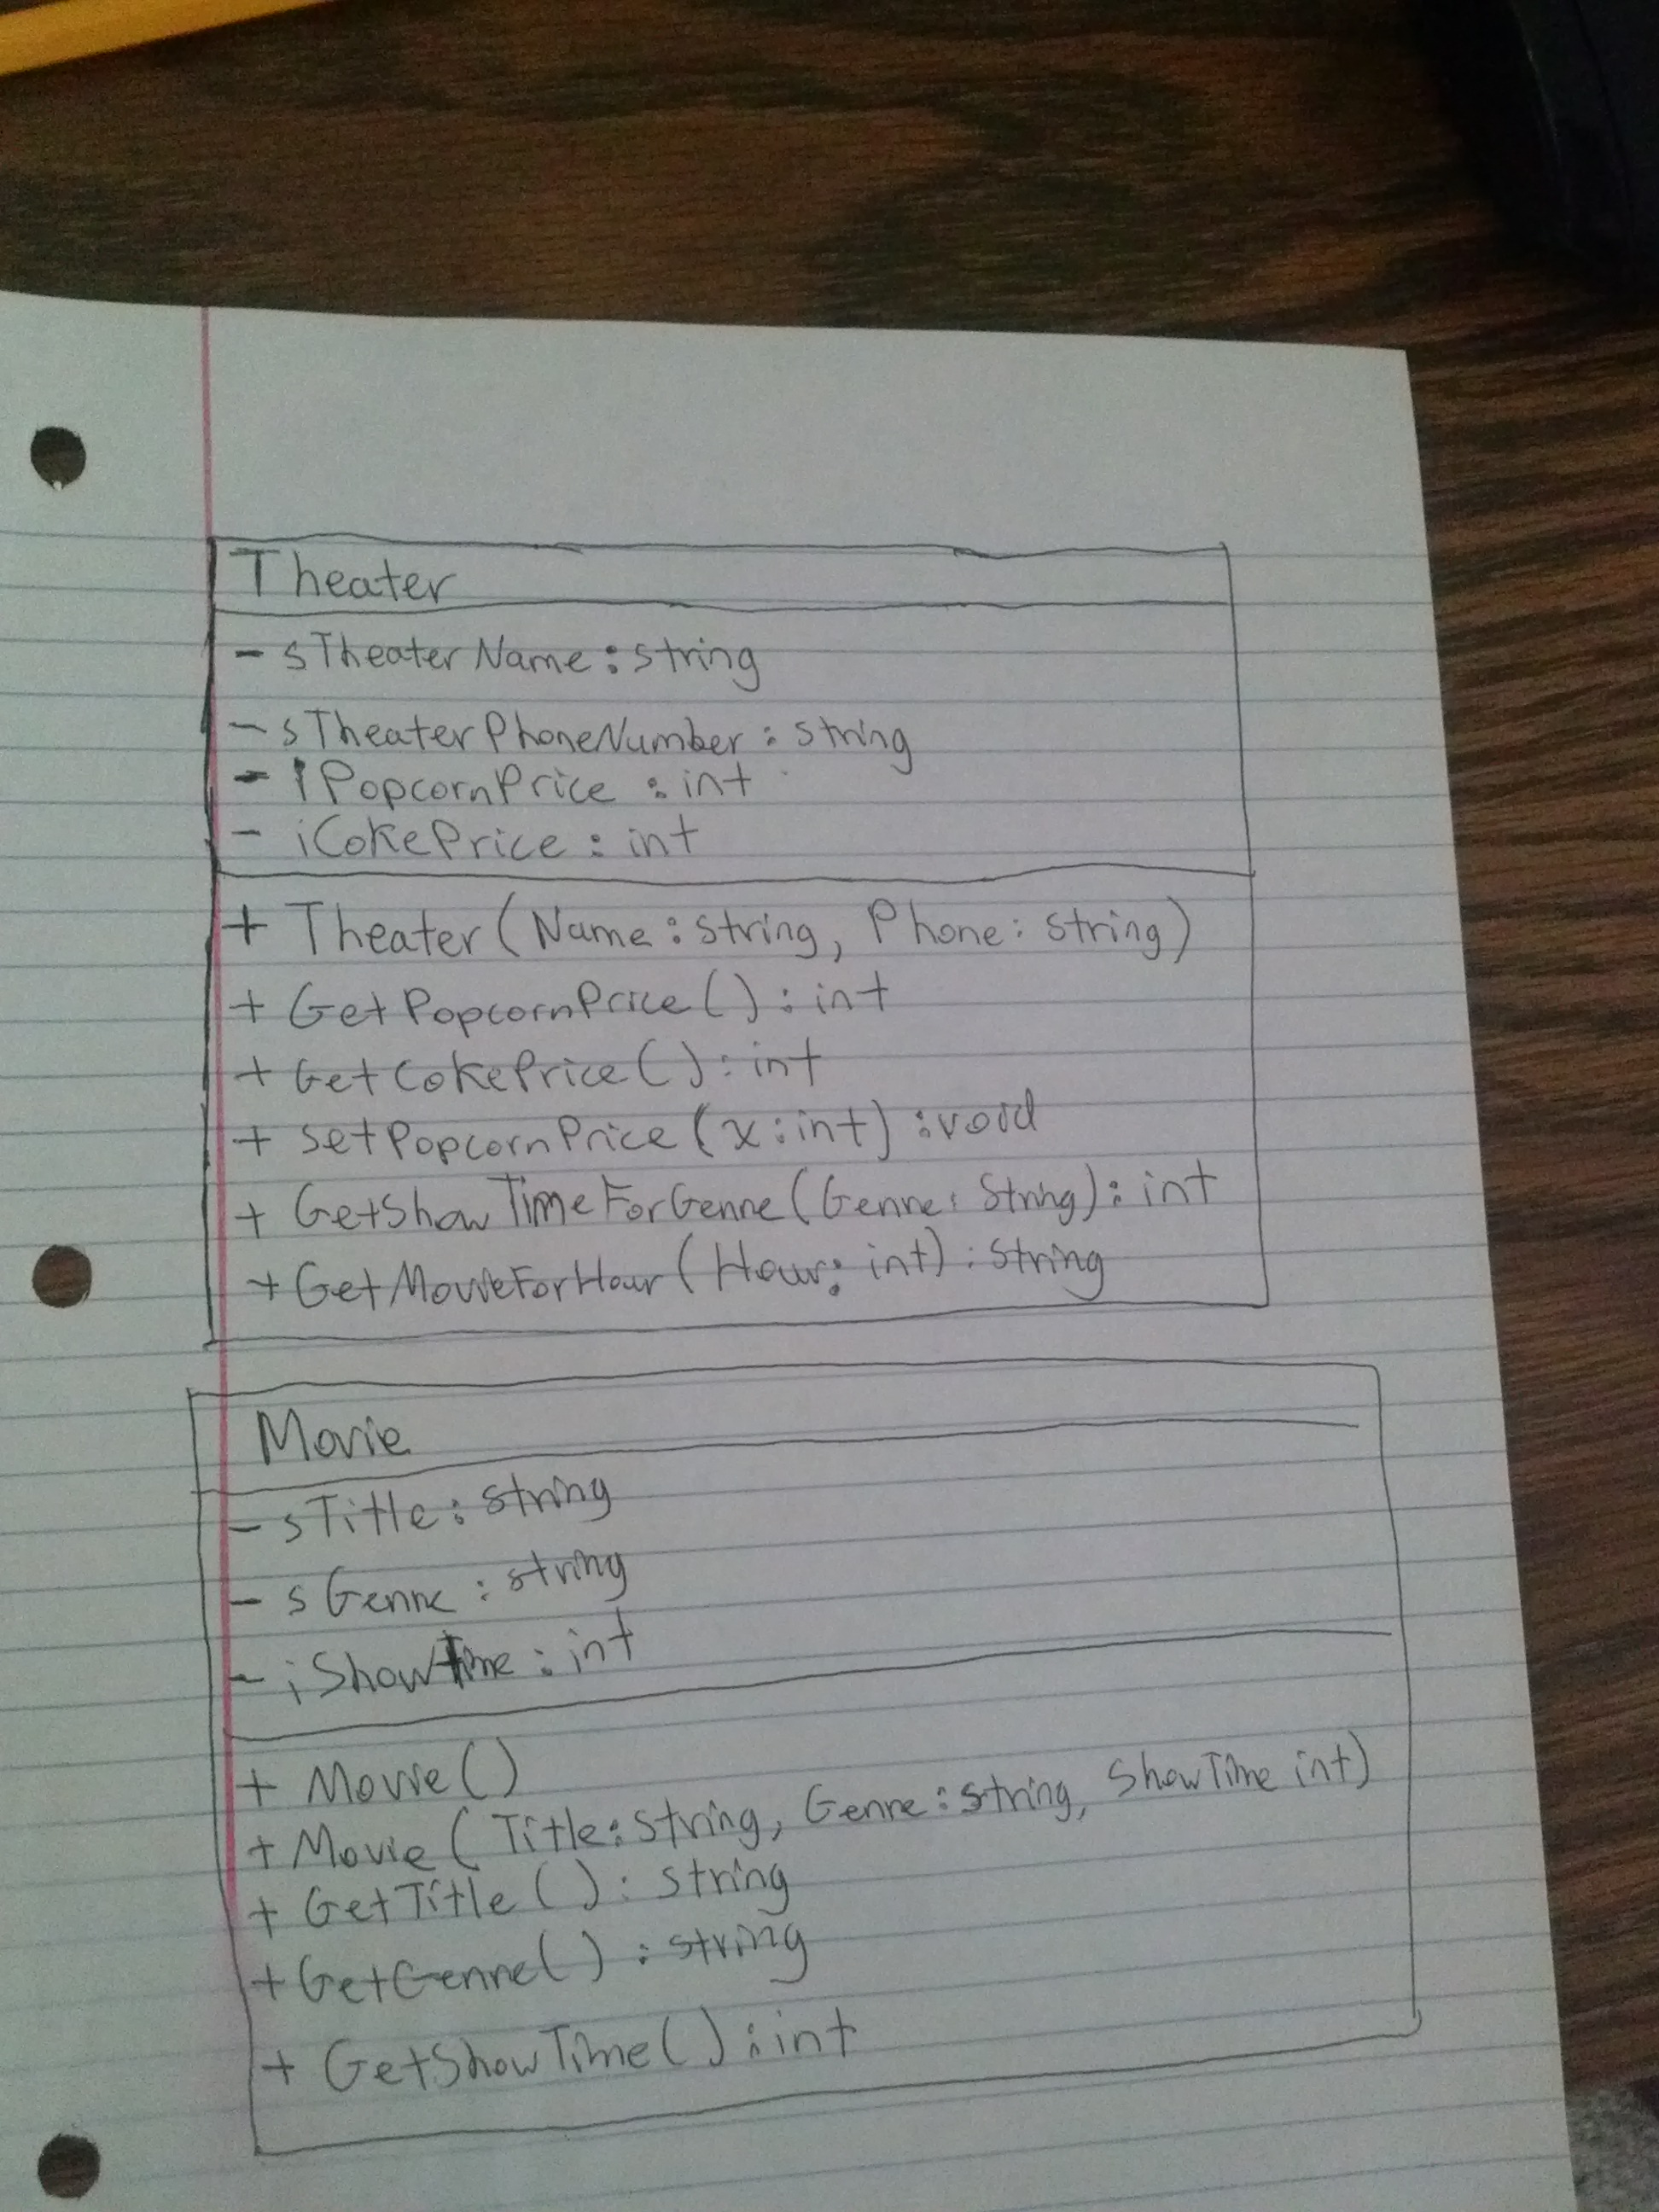 Theater
- sTheaterName: string
- sTheaterPhoneNumber: string
- iPopcornPrice : int
- iCokePrice: int
+ Theater (Name: string, Phone: string)
+ GetPopcornPrice(): int
+ GetCokePrice(): int
+ SetPopcornPrice(x: int) :void
+ GetShowTimeForGenre(Genre: String): int
+ GetMovieForHour (Hour: int): string
Movie
- sTitle: string
- sGenre: string
- iShowTime: int
+ Movie()
+ Movie ( Title: string, Genre: string, ShowTime int)
+ GetTitle(): string
+ GetGenre() : string
+ GetShowTime(): int